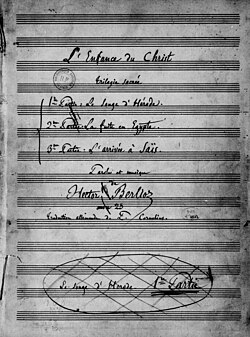 L'Enfance du Christ
trilogie sacrée
1ère Partie, Le songe d'Hérode.
2me Partie, La fuite en Egypte.
3me Partie. L'arrivée à Saïs.
Paroles et musique
de
Hector Berlioz
25
traduction allemande de P. Cornelius.
Le songe d'Hérode 1ère Partie